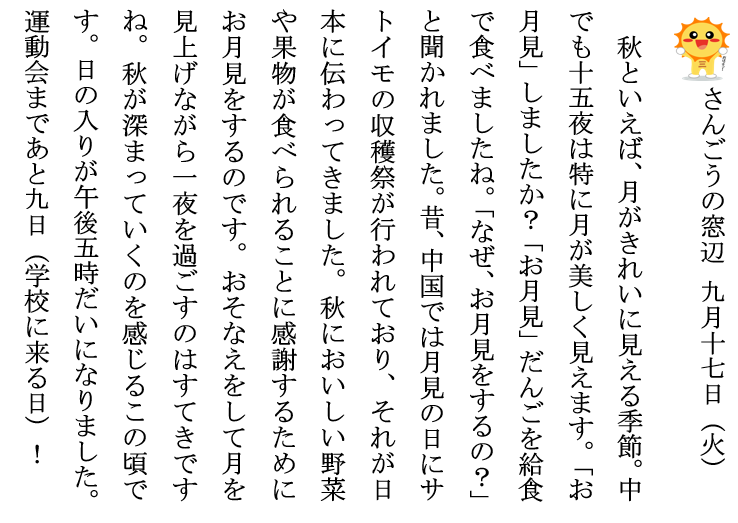 さんごうの窓辺　九月十七日（火）
　秋といえば、月がきれいに見える季節。中
でも十五夜は特に月が美しく見えます。「お
月見」しましたか？「お月見」だんごを給食
で食べましたね。「なぜ、お月見をするの？」
と聞かれました。昔、中国では月見の日にサ
トイモの収穫祭が行われており、それが日
本に伝わってきました。秋においしい野菜
や果物が食べられることに感謝するために
お月見をするのです。おそなえをして月を
見上げながら一夜を過ごすのはすてきです
ね。秋が深まっていくのを感じるこの頃で
す。日の入りが午後五時だいになりました。
運動会まであと九日（学校に来る日）！